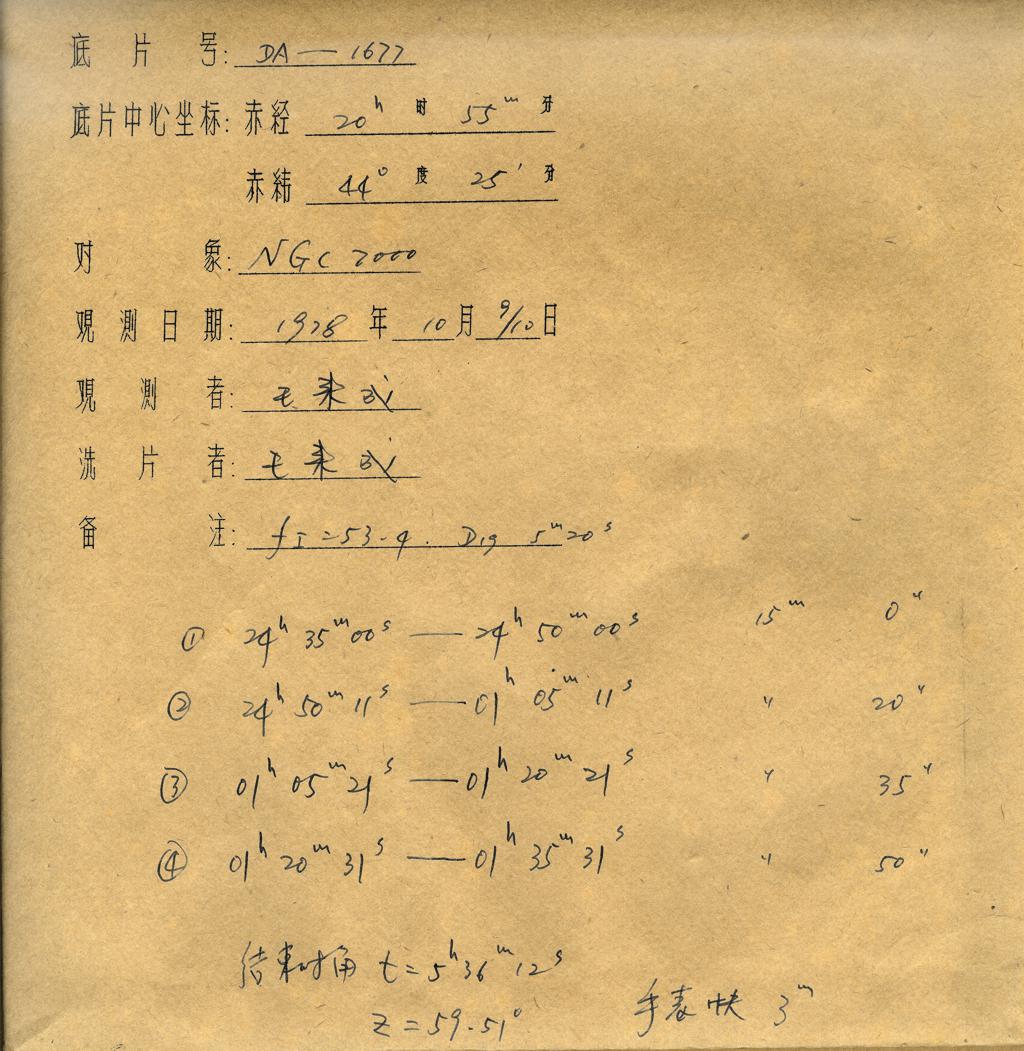 底片号: DA—1677
底片中心坐标: 赤经 20h 时 55m 分
赤纬 44° 度 25′ 分
对象: NGC 7000
观测日期: 1978 年 10月 9/10日
观测者:
洗片者:
备注: fI=53.9. Dig 5m20s
① 24h 35m 00s — 24h 50m 00s 15m 0"
② 24h 50m 11s — 01h 05m 11s " 20"
③ 01h 05m 21s — 01h 20m 21s " 35"
④ 01h 20m 31s — 01h 35m 31s " 50"
结束时角 t=5h36m12s
z=59.51° 手表快 3m